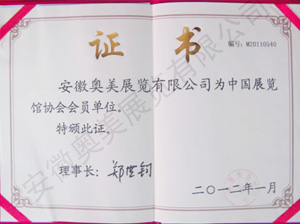 证 书
编号：M20110540
安徽奥美展览有限公司为中国展览
馆协会会员单位。
特颁此证。
理事长：
二〇一二年一月
安徽奥美展览有限公司